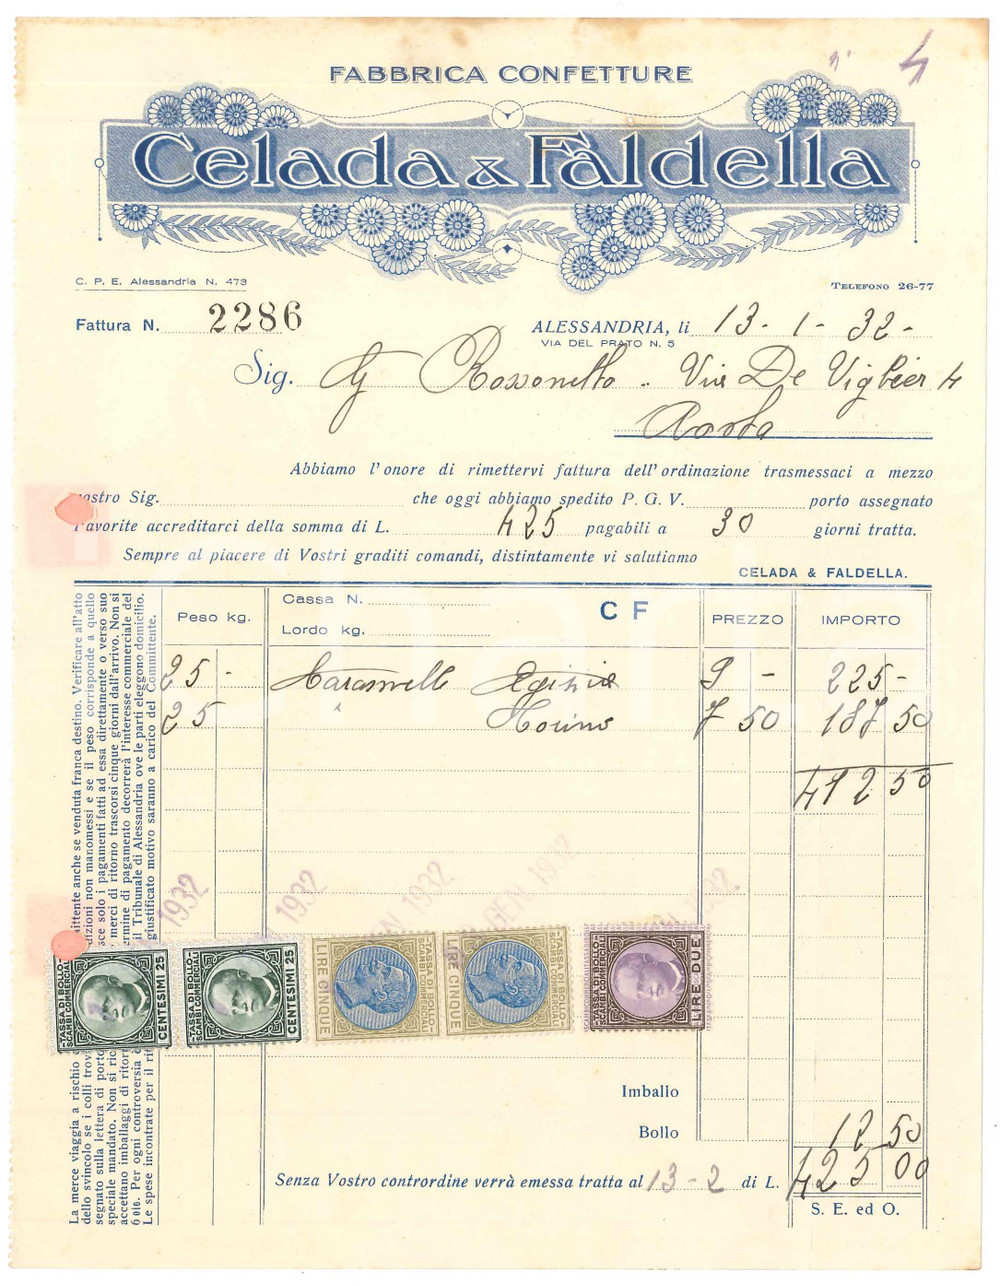 4
FABBRICA CONFETTURE
Celada & Faldella
C. P. E. Alessandria N. 473
TELEFONO 26-77
Fattura N. 2286
ALESSANDRIA, li 13 - 1 - 32 -
VIA DEL PRATO N. 5
Sig. Rossonetto .. Via De
Aosta
Abbiamo l'onore di rimettervi fattura dell'ordinazione trasmessaci a mezzo
vostro Sig. che oggi abbiamo spedito P. G. V. porto assegnato
Favorite accreditarci della somma di L. 425 pagabili a 30 giorni tratta.
Sempre al piacere di Vostri graditi comandi, distintamente vi salutiamo
CELADA & FALDELLA.
Peso kg. Cassa N. C F PREZZO IMPORTO
Lordo kg.
25 - Caramelle 9 - 225 -
25 " 7 50 187 50
412 50
1932 1932 GEN 1932 GEN 1932 1932
TASSA DI BOLLO SCAMBI COMMERCIALI CENTESIMI 25
TASSA DI BOLLO SCAMBI COMMERCIALI CENTESIMI 25
LIRE CINQUE TASSA DI BOLLO SCAMBI COMMERCIALI
LIRE CINQUE TASSA DI BOLLO SCAMBI COMMERCIALI
TASSA DI BOLLO SCAMBI COMMERCIALI LIRE DUE
Imballo
Bollo 12 50
Senza Vostro contrordine verrà emessa tratta al 13 - 2 di L. 425 00
S. E. ed O.
La merce viaggia a rischio mittente anche se venduta franca destino. Verificare all'atto
dello svincolo se i colli trov dizioni non manomessi e se il peso corrisponde a quello
segnato sulla lettera di porto sce solo i pagamenti fatti ad essa direttamente o verso suo
speciale mandato. Non si ric merci di ritorno trascorsi cinque giorni dall'arrivo. Non si
accettano imballaggi di ritor ermine di pagamento decorrerà l'interesse commerciale del
6 0/0. Per ogni controversia è il Tribunale di Alessandria ove le parti eleggono domicilio.
Le spese incontrate per il rit giustificato motivo saranno a carico del Committente.